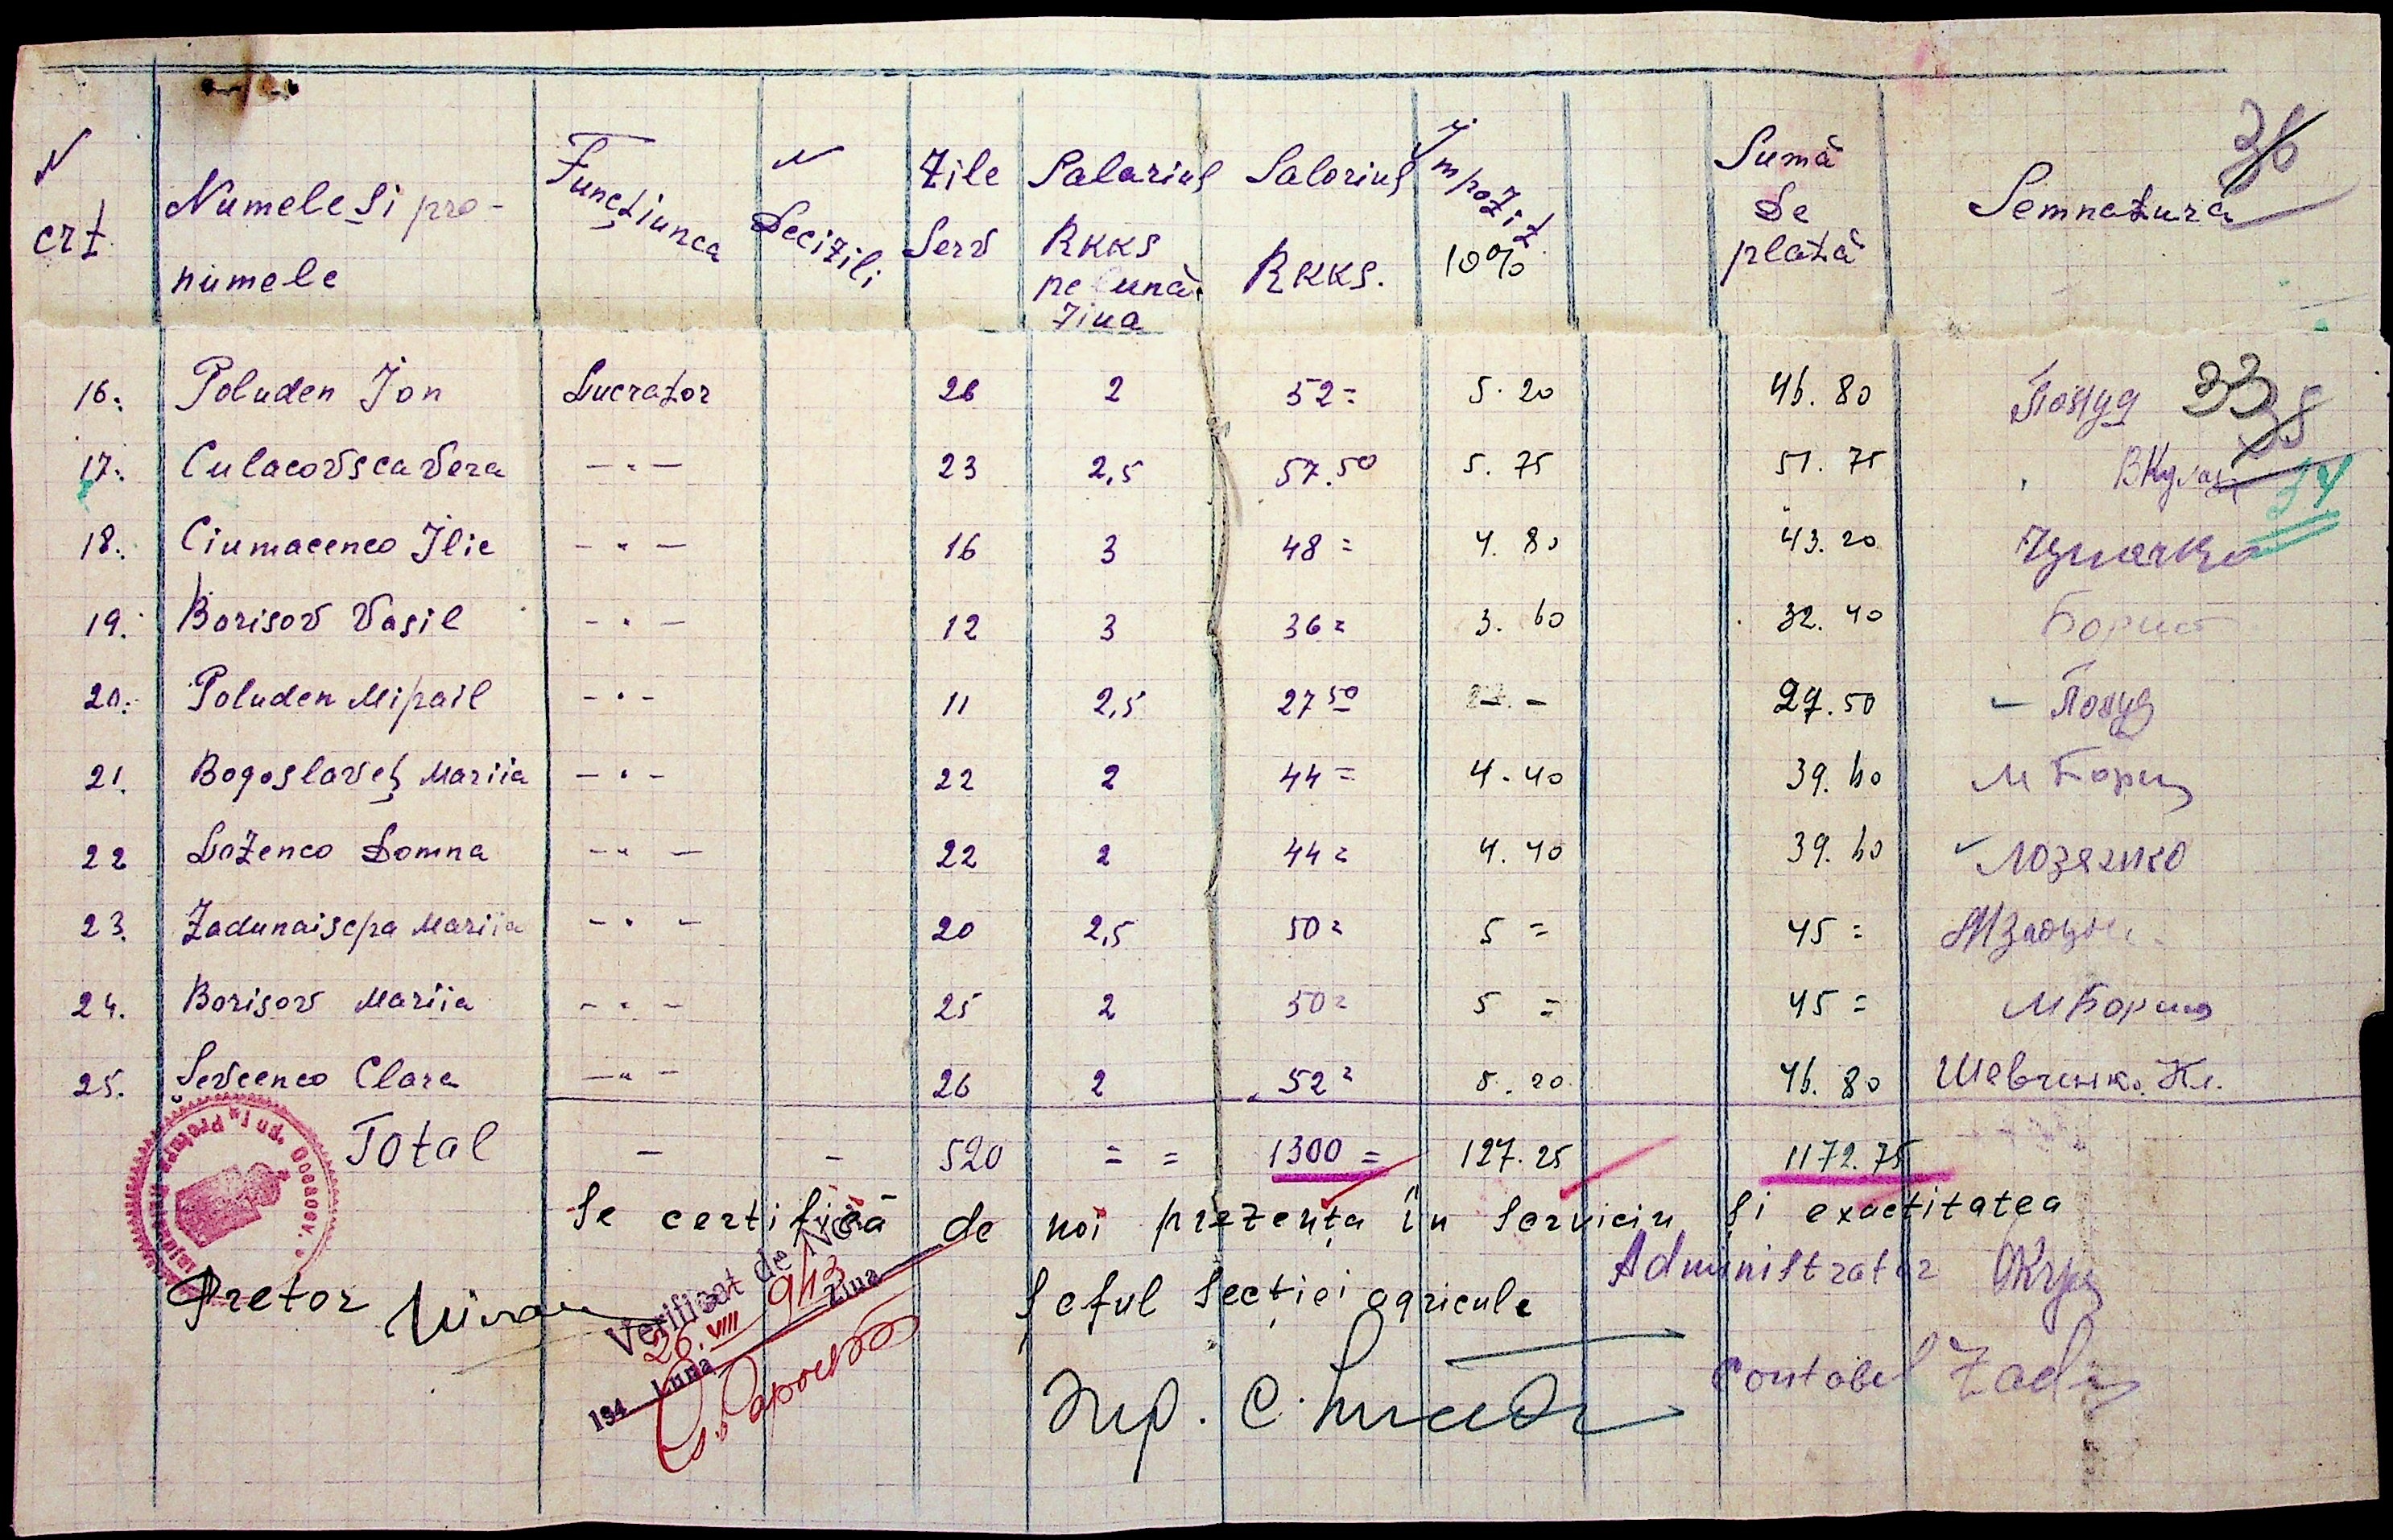 36
N crt.
Numele Si pro-numele
Funcţiunea
N Decizili
Zile Serv
Salariul RKKS pe ună ziua
Salariul RKKS.
Impozit 10%
Sumă De plată
Semnatura
16. Poluden Ion Lucrator 26 2 52= 5.20 46.80 Полуд 33 35
17. Culacovsca Vera —"— 23 2,5 57.50 5.75 51.75 ВКулак 34
18. Ciumacenco Ilie —"— 16 3 48= 4.80 43.20
19. Borisov Vasil —"— 12 3 36= 3.60 32.40 Борис
20. Poluden Mihail —"— 11 2,5 27 50 — 27.50 Полуд
21. Bogoslaveţ Mariia —"— 22 2 44= 4.40 39.60
22 Lozenco Domna —"— 22 2 44= 4.40 39.60 Лозенко
23. Zadunaischa Mariia —"— 20 2,5 50= 5= 45= МЗадун
24. Borisov Mariia —"— 25 2 50= 5= 45= МБорис
25. Şevcenco Clara —"— 26 2 52= 5.20 46.80 Шевченко Кл.
Total — — 520 = = 1300= 127.25 1172.75
Se certifică de noi prezenţa în serviciu şi exactitatea
Pretor
Verificat de Noi
26.VIII 943
194 Luna Ziua
Şeful Secţiei agricule
Administrator
Contabel Zad